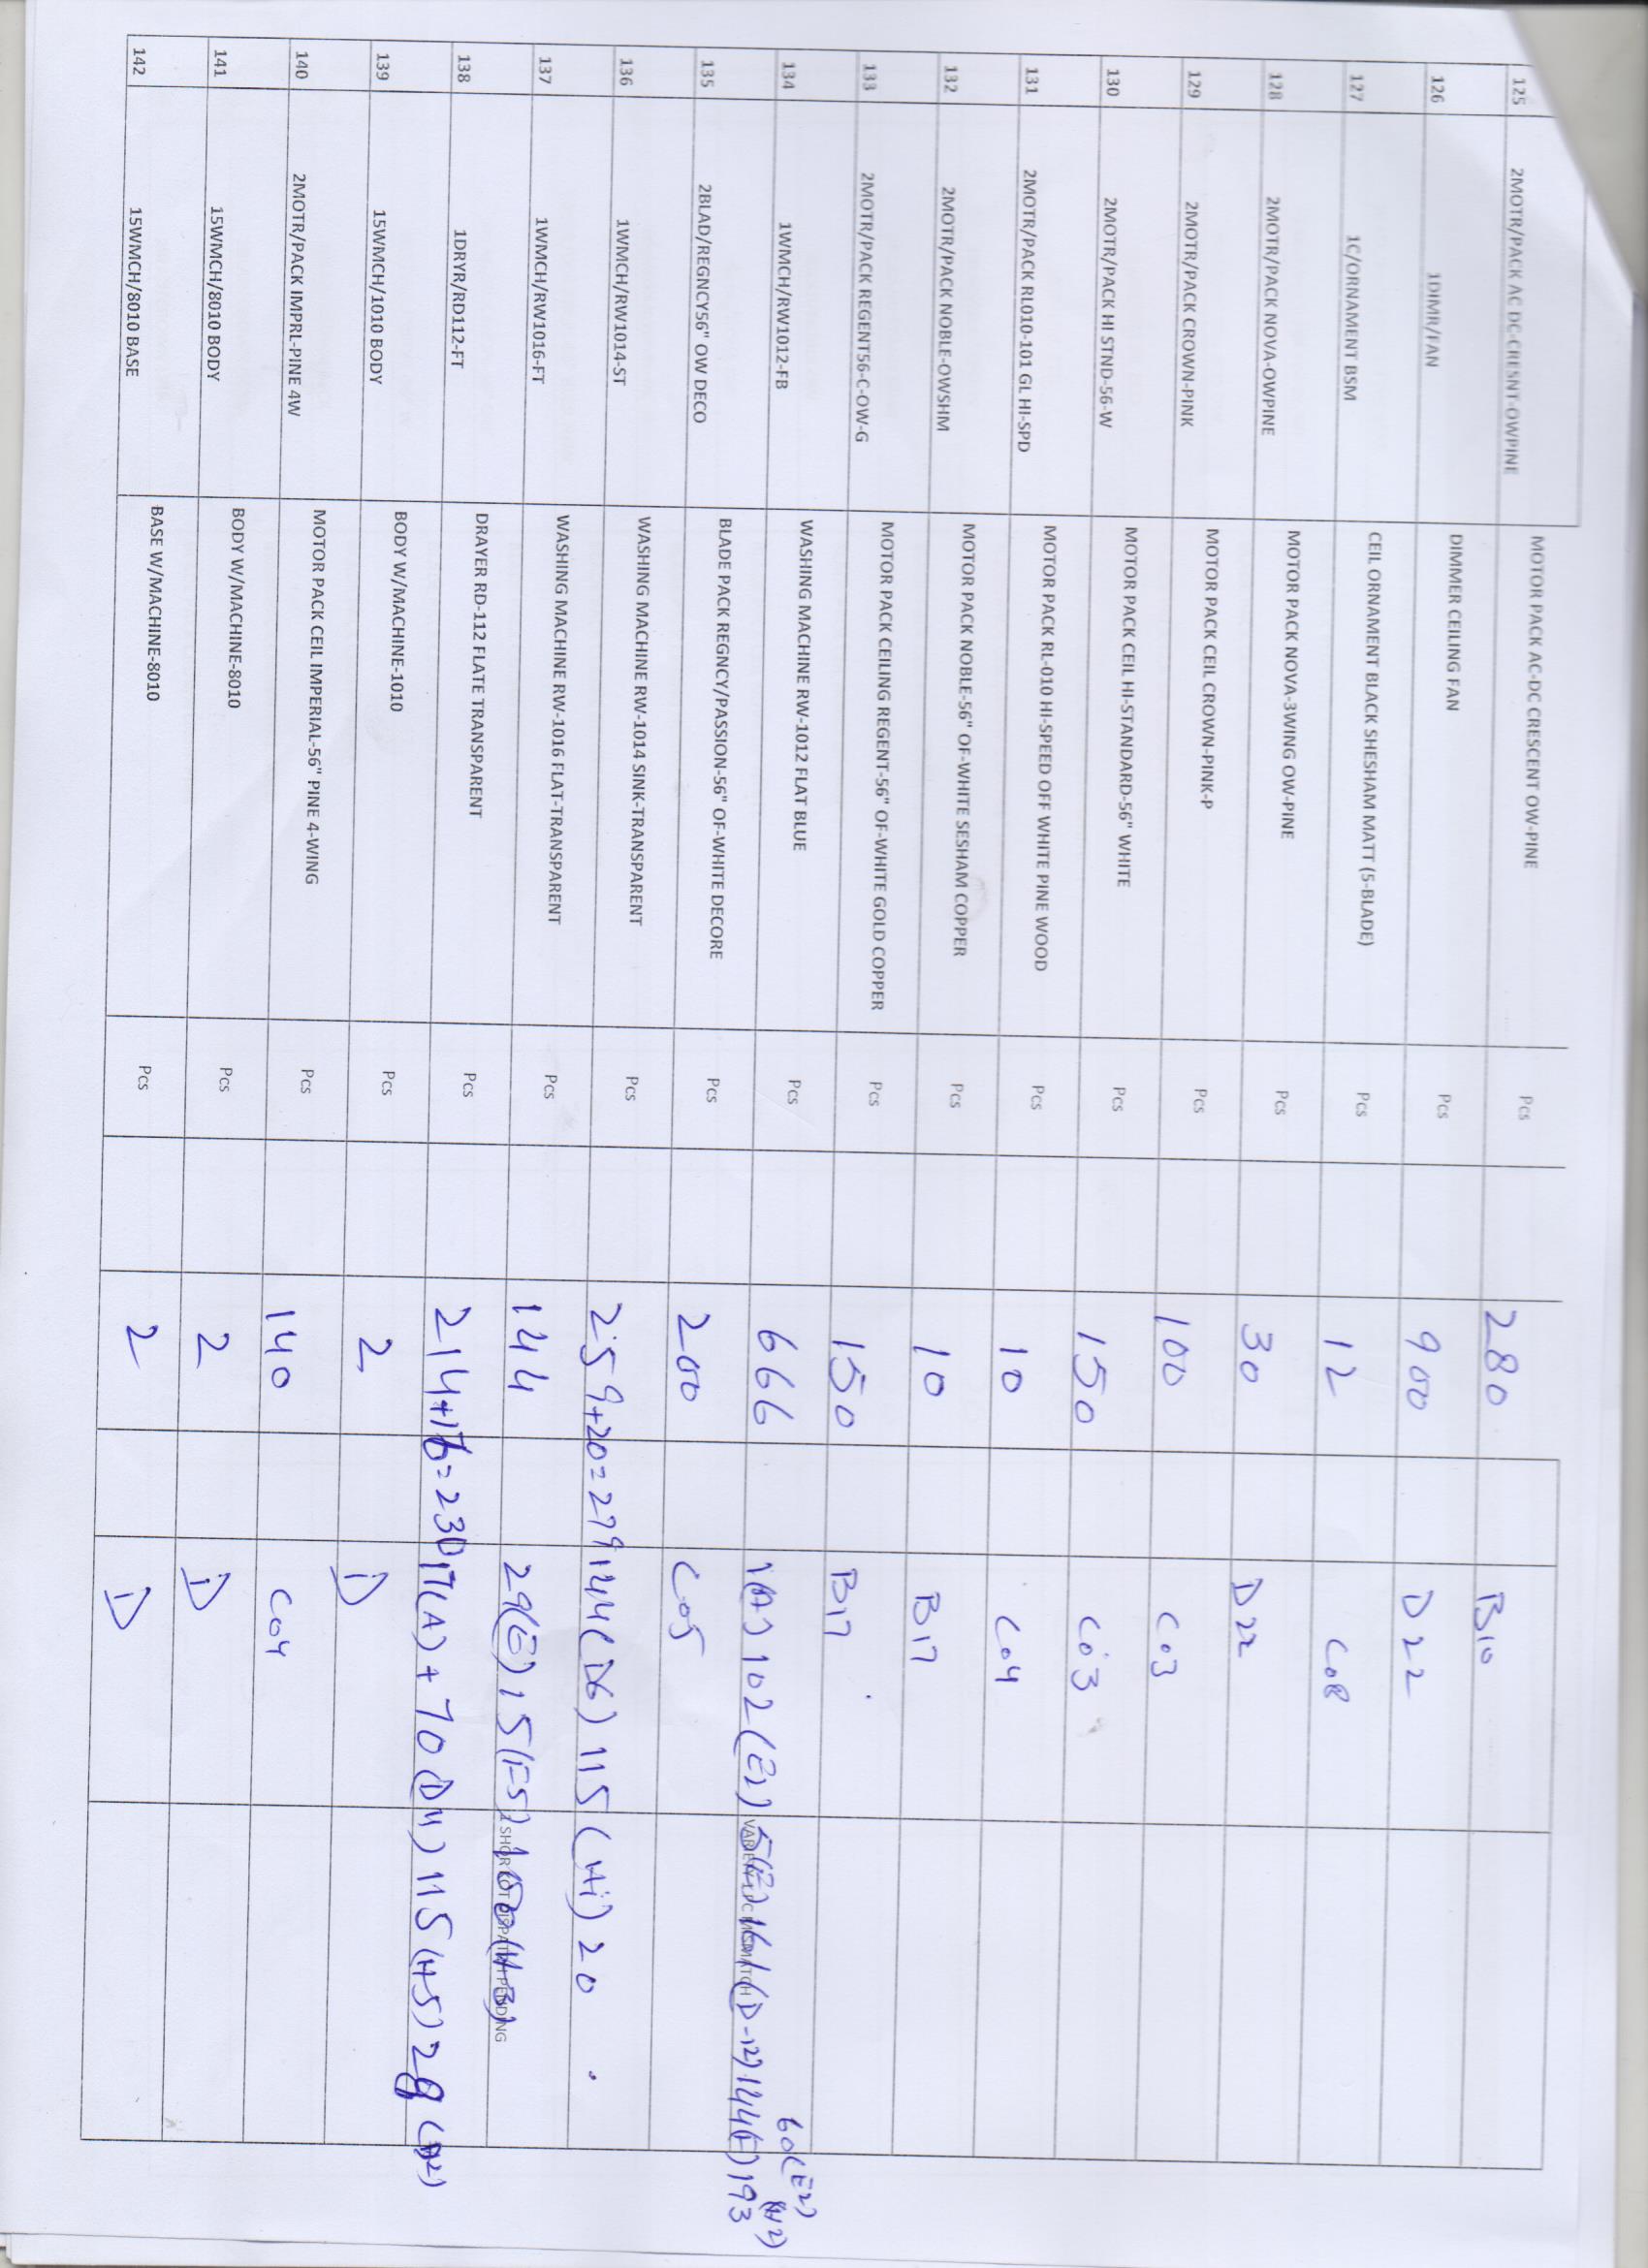 125 2MOTR/PACK AC DC-CRESNT-OWPINE MOTOR PACK AC-DC CRESCENT OW-PINE Pcs 280 B10
126 1DIMR/FAN DIMMER CEILING FAN Pcs 900 D22
127 1C/ORNAMENT BSM CEIL ORNAMENT BLACK SHESHAM MATT (5-BLADE) Pcs 12 C08
128 2MOTR/PACK NOVA-OWPINE MOTOR PACK NOVA-3WING OW-PINE Pcs 30 D22
129 2MOTR/PACK CROWN-PINK MOTOR PACK CEIL CROWN-PINK-P Pcs 100 C03
130 2MOTR/PACK HI STND-56-W MOTOR PACK CEIL HI-STANDARD-56" WHITE Pcs 150 C03
131 2MOTR/PACK RL010-101 GL HI-SPD MOTOR PACK RL-010 HI-SPEED OFF WHITE PINE WOOD Pcs 10 C04
132 2MOTR/PACK NOBLE-OWSHM MOTOR PACK NOBLE-56" OF-WHITE SESHAM COPPER Pcs 10 B17
133 2MOTR/PACK REGENT56-C-OW-G MOTOR PACK CEILING REGENT-56" OF-WHITE GOLD COPPER Pcs 150 B17
60(E2)
134 1WMCH/RW1012-FB WASHING MACHINE RW-1012 FLAT BLUE Pcs 666 1(A) 102(E2) 5(E) 161(D-12) 144(F) 193 (H2)
VARIETY 1 PC MISMATCH
135 2BLAD/REGNCY56" OW DECO BLADE PACK REGNCY/PASSION-56" OF-WHITE DECORE Pcs 200 C05
136 1WMCH/RW1014-ST WASHING MACHINE RW-1014 SINK-TRANSPARENT Pcs 259+20=279 144(D6) 115(Hi) 20
137 1WMCH/RW1016-FT WASHING MACHINE RW-1016 FLAT-TRANSPARENT Pcs 144 29(E) 15(F5) 100(H-3)
SHOR KOT DISPATCH PENDING
138 1DRYR/RD112-FT DRAYER RD-112 FLATE TRANSPARENT Pcs 214+16=230 17(A) + 70(D11) 115(H5) 28
139 15WMCH/1010 BODY BODY W/MACHINE-1010 Pcs 2 D
140 2MOTR/PACK IMPRL-PINE 4W MOTOR PACK CEIL IMPERIAL-56" PINE 4-WING Pcs 140 C04
141 15WMCH/8010 BODY BODY W/MACHINE-8010 Pcs 2 D
142 15WMCH/8010 BASE BASE W/MACHINE-8010 Pcs 2 D